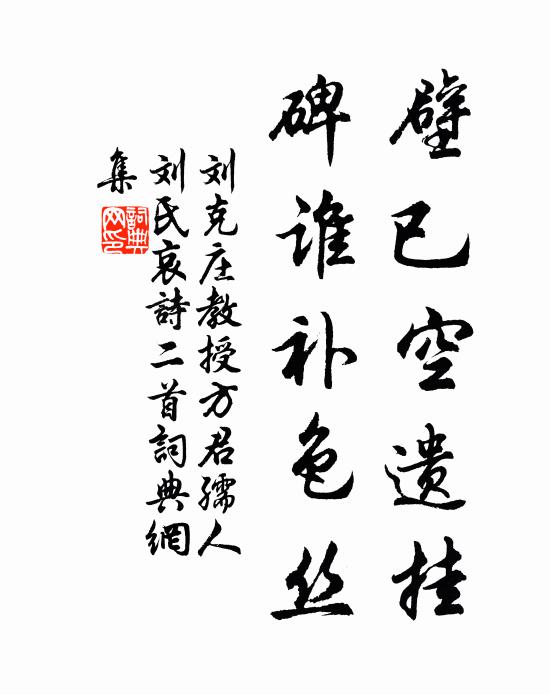 壁已空遗挂
碑谁补色丝
刘克庄教授方君孺人
刘氏哀詩二首詞典網
集
詞典
网印